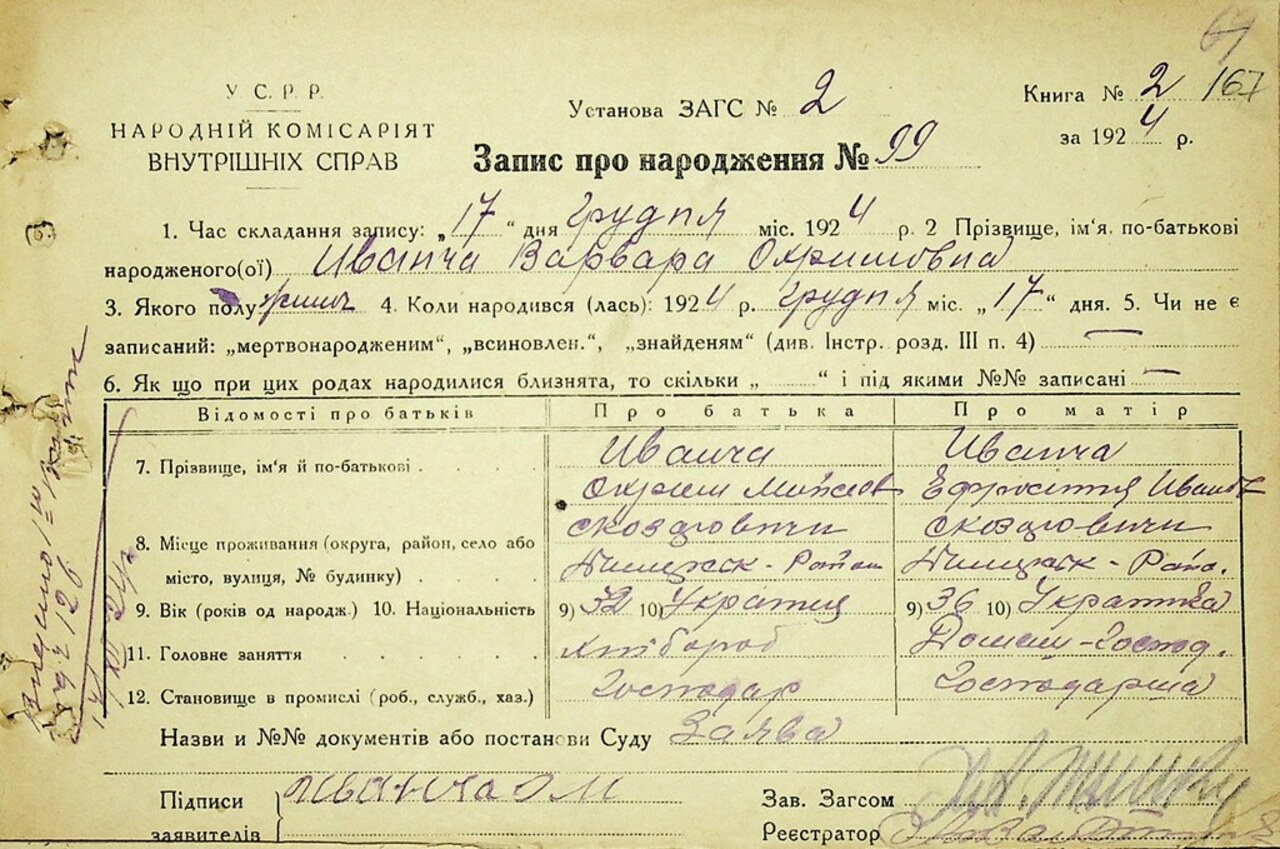 69
У С. Р. Р.
НАРОДНІЙ КОМІСАРІЯТ
ВНУТРІШНІХ СПРАВ
Установа ЗАГС № 2
Книга № 2 167
за 1924 р.
Запис про народження № 99
1. Час складання запису: „17“ дня грудня міс. 1924 р. 2 Прізвище, ім'я, по-батькові
народженого(ої) Иванча Варвара Охримовна
3. Якого полу жіноч 4. Коли народився (лась): 1924 р. грудня міс. „17“ дня. 5. Чи не є
записаний: „мертвонародженим“, „всиновлен.“, „знайденям“ (див. Інстр. розд. III п. 4) —
6. Як що при цих родах народилися близнята, то скільки „ “ і під якими №№ записані —
Відомості про батьків Про батька Про матір
7. Прізвище, ім'я й по-батькові Иванча Иванча
Охрим Ефросинія Иванов
8. Місце проживання (округа, район, село або
місто, вулиця, № будинку)
9. Вік (років од народж.) 10. Національність 9) 32 10) Украинец 9) 36 10) Украінка
11. Головне заняття хлібороб Домаш-господ.
12. Становище в промислі (роб., служб., хаз.) Господар Господарша
Назви и №№ документів або постанови Суду Заява
Підписи Иванча О М
заявителів
Зав. Загсом
Реєстратор